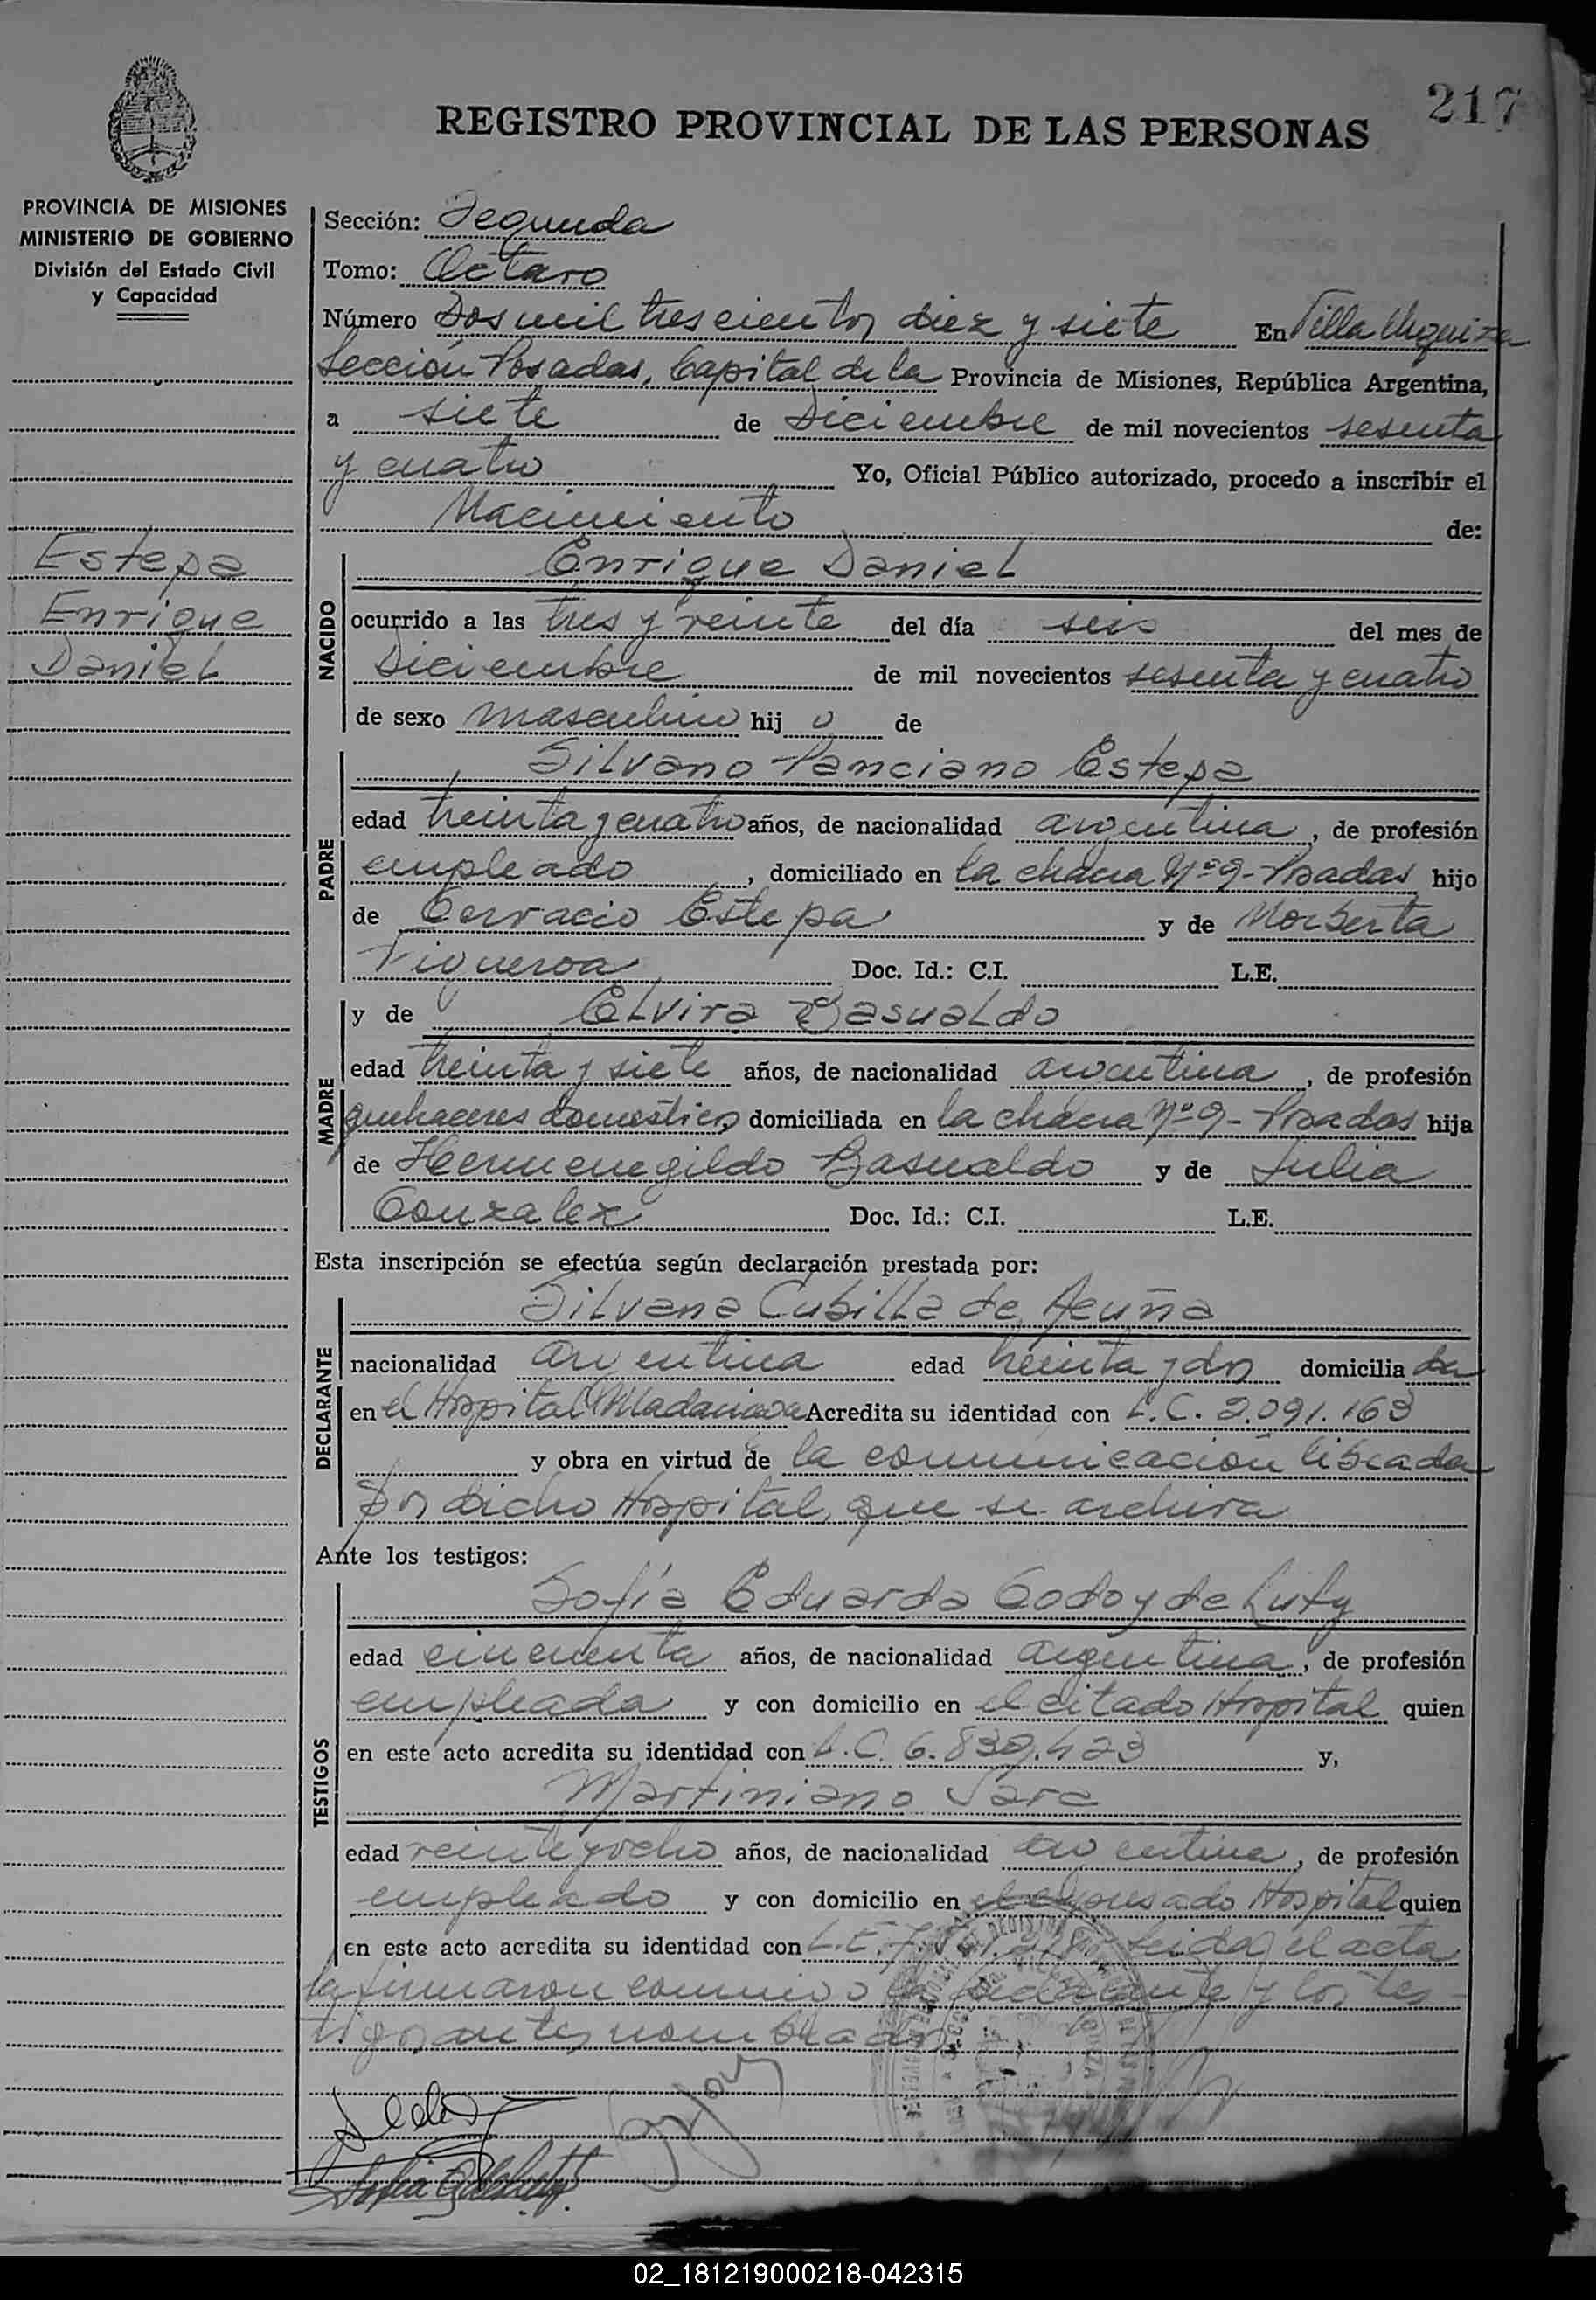 217
REGISTRO PROVINCIAL DE LAS PERSONAS
PROVINCIA DE MISIONES
MINISTERIO DE GOBIERNO
División del Estado Civil
y Capacidad
Estepa
Enrique
Daniel
Sección: Segunda
Tomo: Octavo
Número Dos mil trescientos diez y siete En Villa Urquiza
Sección Posadas, Capital de la Provincia de Misiones, República Argentina,
a siete de Diciembre de mil novecientos sesenta
y cuatro Yo, Oficial Público autorizado, procedo a inscribir el
Nacimiento de:
NACIDO
Enrique Daniel
ocurrido a las tres y veinte del día seis del mes de
Diciembre de mil novecientos sesenta y cuatro
de sexo masculino hij o de
PADRE
Silvano Ponciano Estepa
edad treinta y cuatro años, de nacionalidad argentina, de profesión
empleado, domiciliado en la chacra Nº 9 - Posadas hijo
de Gervacio Estepa y de Norberta
Figueroa Doc. Id.: C.I. L.E.
MADRE
y de Elvira Basualdo
edad treinta y siete años, de nacionalidad argentina, de profesión
quehaceres domesticos domiciliada en la chacra Nº 9 - Posadas hija
de Hermenegildo Basualdo y de Julia
Gonzalez Doc. Id.: C.I. L.E.
Esta inscripción se efectúa según declaración prestada por:
DECLARANTE
Silvana Cubilla de Acuña
nacionalidad argentina edad treinta y dos domicilia da
en el Hospital Madariaga Acredita su identidad con L.C. 2.091.163
y obra en virtud de la comunicación librada
por dicho Hospital, que se archiva
Ante los testigos:
TESTIGOS
Sofía Eduarda Godoy de Luty
edad cincuenta años, de nacionalidad argentina, de profesión
empleada y con domicilio en el citado Hospital quien
en este acto acredita su identidad con L.C. 6.839.423 y,
Martiniano Jara
edad veinte y ocho años, de nacionalidad argentina, de profesión
empleado y con domicilio en el expresado Hospital quien
en este acto acredita su identidad con L.E. Leida el acta
la firmaron conmigo la declarante y los tes-
tigos antes nombrados.
02_181219000218-042315